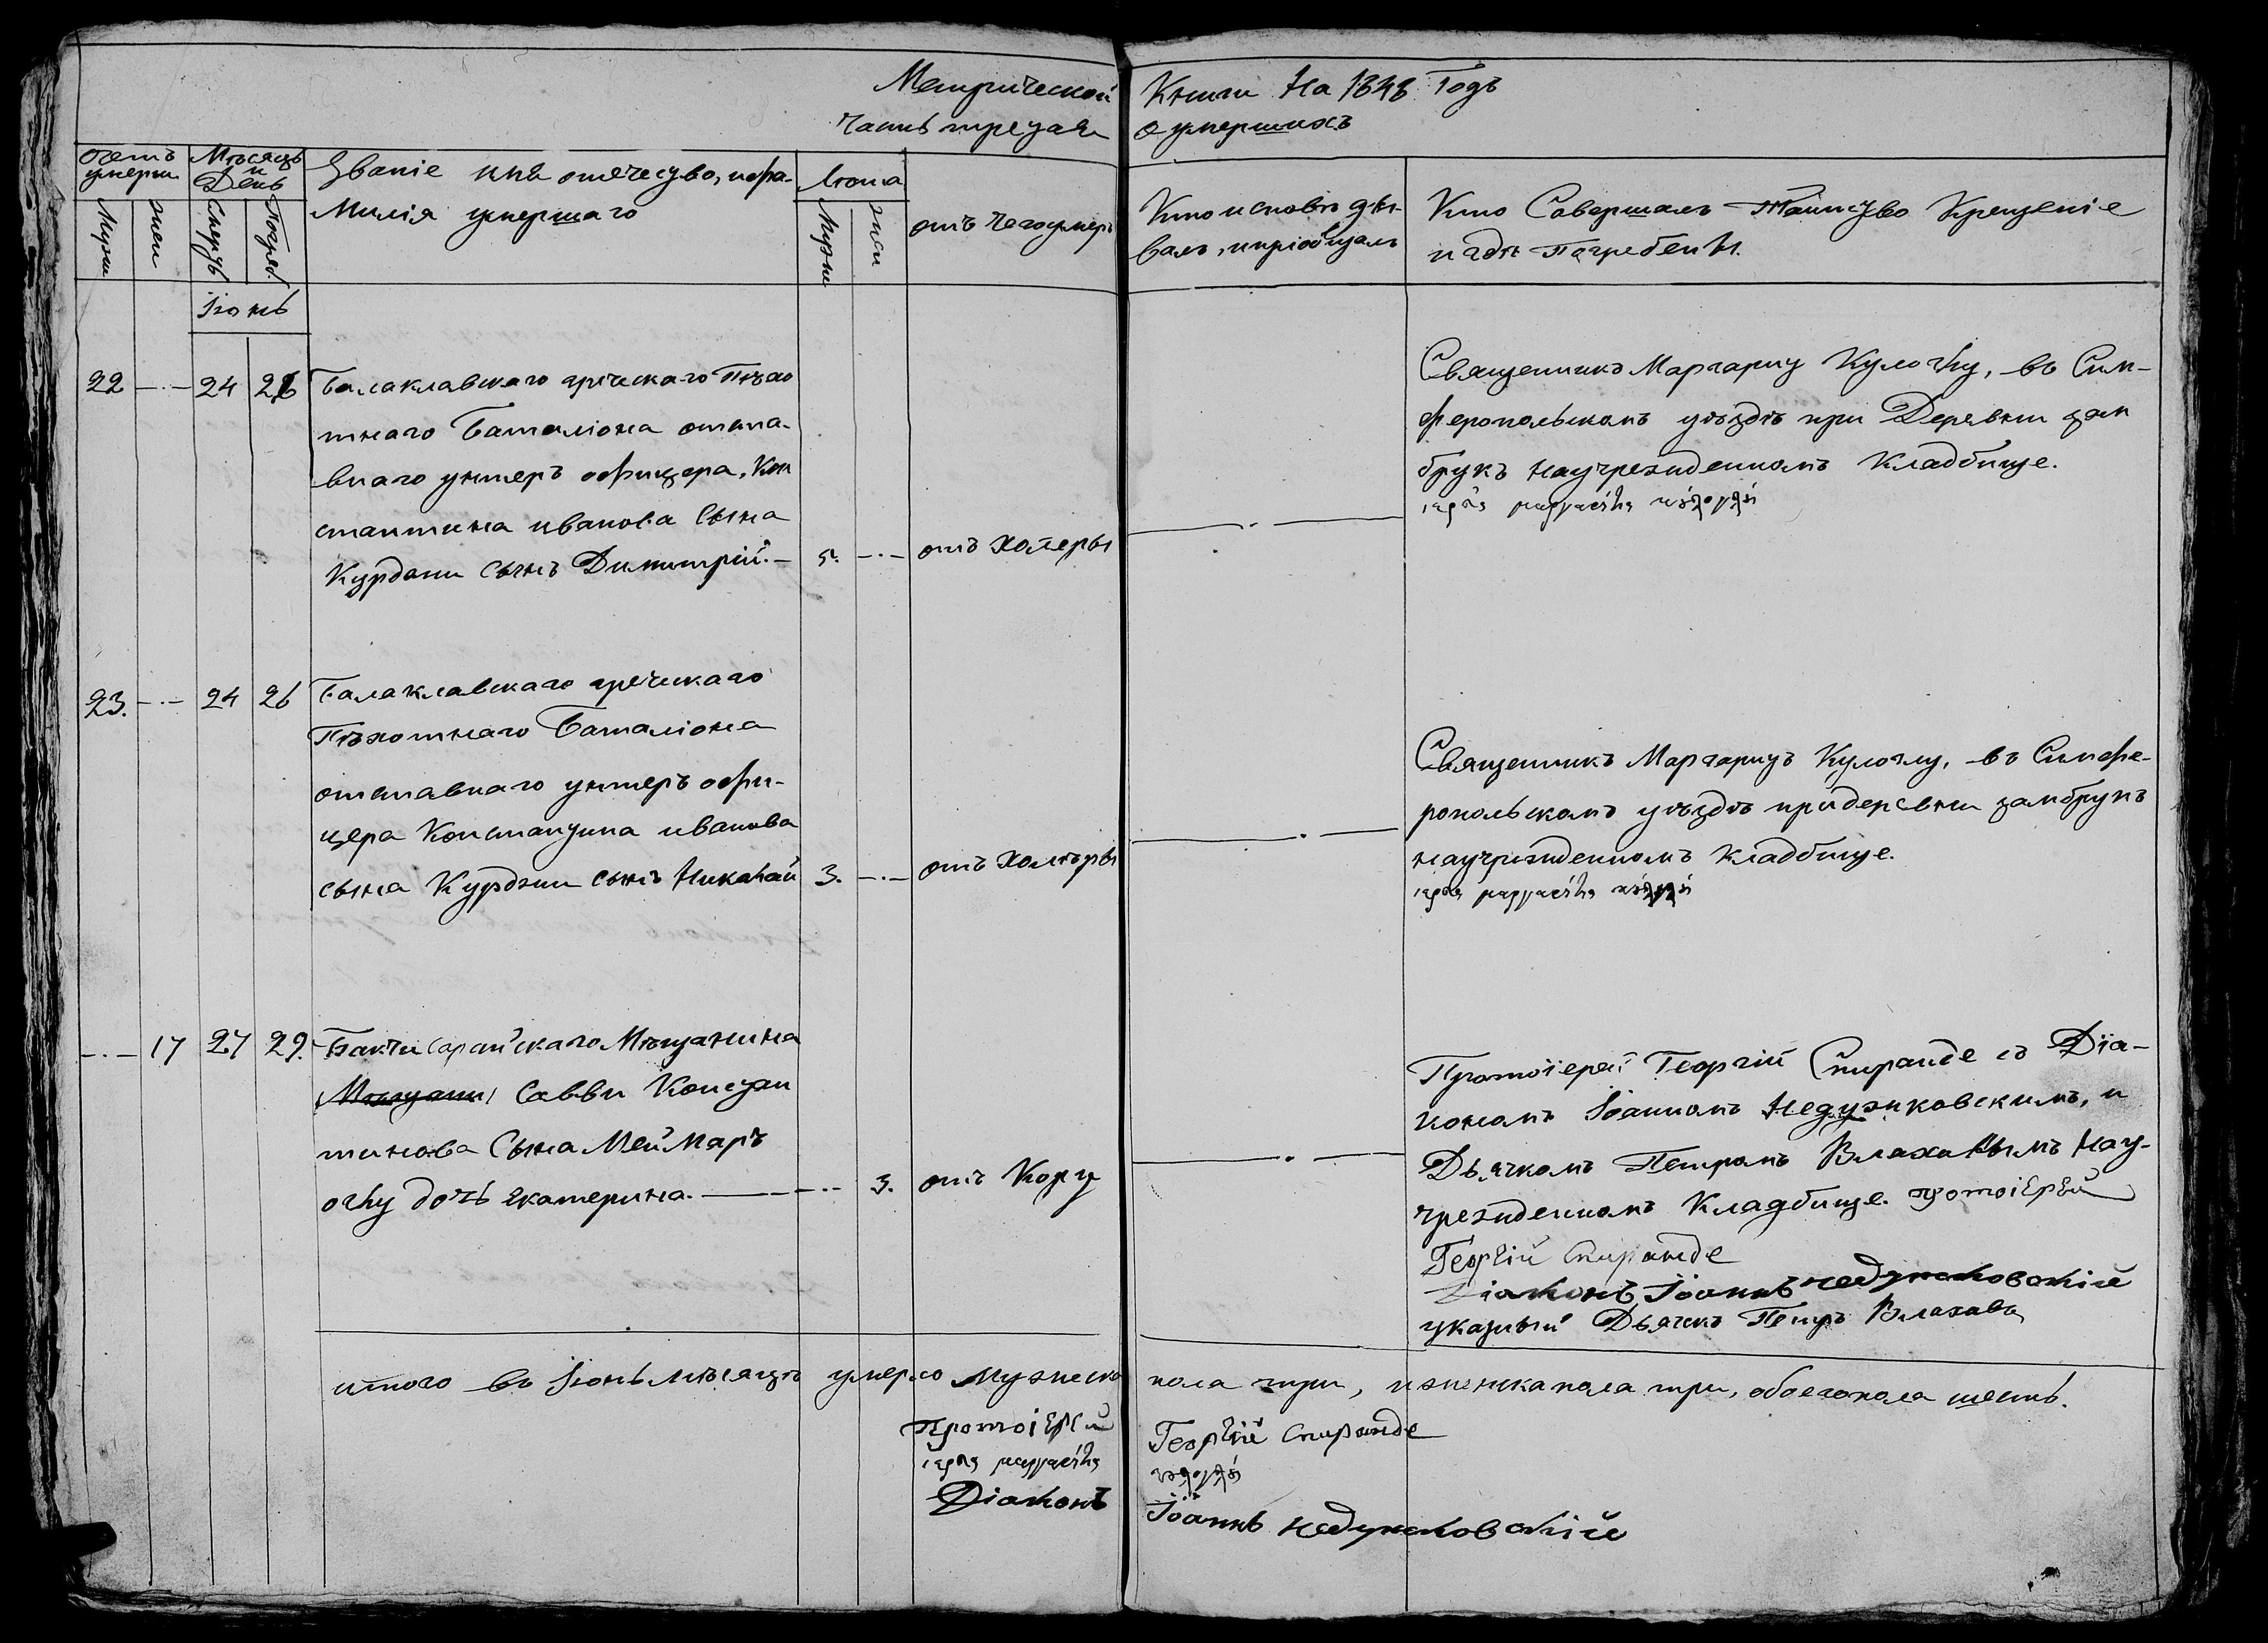 Метрической Книги На 1848 Годъ
Часть третая о умершихъ
Счетъ умерши
Мѣсяцъ и День
Званіе имя отечество, и фа-
милія умершаго
Лѣта
отъ чего умеръ
Кто исповѣды-
валъ, и пріобщалъ
Кто Совершалъ Таинство Крещеніе
и гдѣ Погребены.
Мужи
жен
Смерть
Погреб.
Мужи
жен
Іюнь
22 —·— 24 26
Балаклавскаго греческаго Пѣхо
тнаго Баталіона отста-
внаго унтеръ офицера, Кон
стантина иванова Сына
Курдони Сынъ Димитрій. — 5. —·— отъ Холеры
Священникъ Маргариту Кулогlу, въ Сим-
феропольскомъ уѣздѣ при Деревни зам
брукъ научрежденномъ Кладбище.
23. —·— 24 26
Балаклавскаго греческаго
Пѣхотнаго Баталіона
отставнаго унтеръ офи-
цера Константина иванова
сына Курдони сынъ Николай 3. —·— отъ Холѣры
Священникъ Маргаритъ Кулоглу, въ Симфе-
ропольскомъ уѣздѣ придеревни замбрукъ
научрежденномъ Кладбище.
—·— 17 27 29.
Бакчисарайскаго Мѣщанина
Савви Констан
тинова Сына Меймаръ
оглу дочь Екатерина. —·— 3. отъ Кору
Протоіерей Георгій Спиранде съ Діа-
кономъ Іоанномъ Недужковскимъ, и
Дьячкомъ Петромъ Влаховымъ Нау-
чрежденномъ Кладбище. протоіерей
Георгій Спиранде
Діаконъ Іоаннъ недужковскій
указный Дьячекъ Петръ Влаховъ
итого въ Іюнь мѣсяцѣ умерло мужеска пола три, и женска пола три, обоего пола шесть.
Протоіерей Георгій Спиранде
Діаконъ Іоаннъ недужковскій